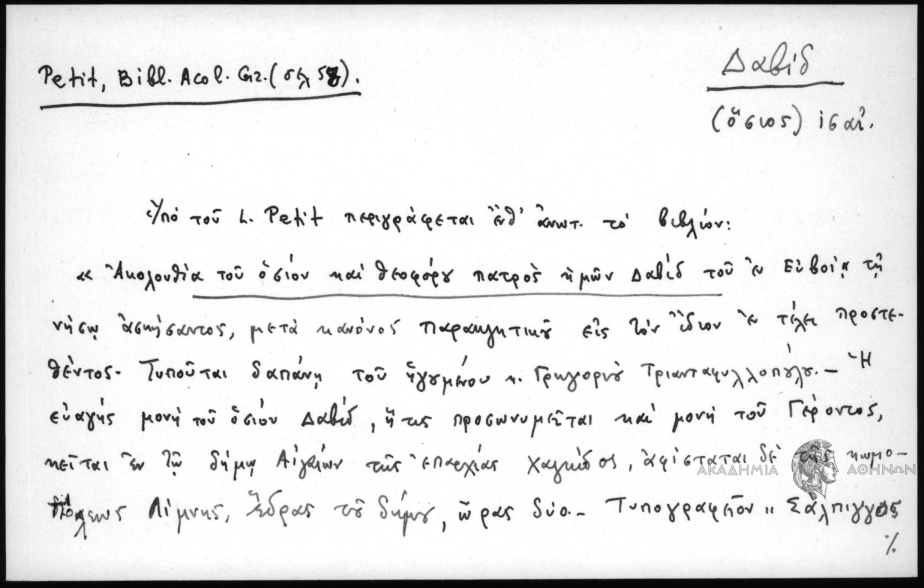 Petit, Bibl. Acol. Gr. (σελ 58).
Δαβίδ
(ὅσιος) ἰσαπ.
Ὑπὸ τοῦ L. Petit περιγράφεται ἔνθ' ἀνωτ. τὸ βιβλίον:
« Ἀκολουθία τοῦ ὁσίου καὶ θεοφόρου πατρὸς ἡμῶν Δαβίδ τοῦ ἐν Εὐβοίᾳ τῇ
νήσῳ ἀσκήσαντος, μετὰ κανόνος παρακλητικοῦ εἰς τὸν ἴδιον ἐν τέλει προστε-
θέντος. Τυποῦται δαπάνῃ τοῦ ἡγουμένου κ. Γρηγορίου Τριανταφυλλοπούλου. – Ἡ
εὐαγὴς μονὴ τοῦ ὁσίου Δαβίδ, ἥτις προσωνυμεῖται καὶ μονὴ τοῦ Γέροντος,
κεῖται ἐν τῷ δήμῳ Αἰγαίων τῆς ἐπαρχίας Χαλκίδος, ἀφίσταται δὲ τῆς κωμο-
πόλεως Λίμνης, ἕδρας τοῦ δήμου, ὥρας δύο. – Τυπογραφεῖον " Σάλπιγγος
%
ΑΚΑΔΗΜΙΑ ΑΘΗΝΩΝ